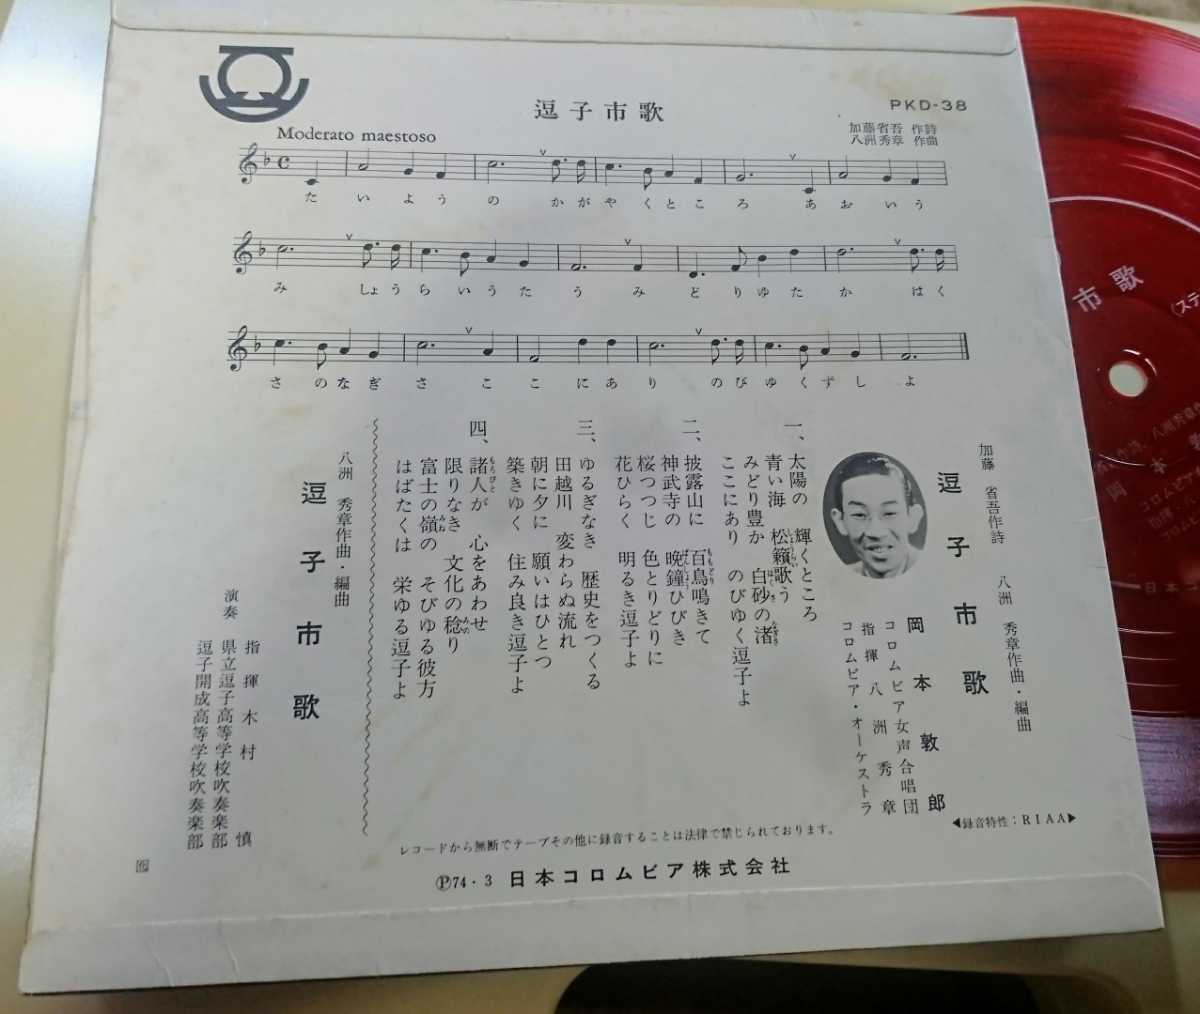 逗子市歌
PKD-38
加藤省吾 作詩
八洲秀章 作曲
Moderato maestoso
たいようのかがやくところあおいう
みしょうらいうたうみどりゆたかはく
さのなぎさここにありのびゆくずしよ
加藤 省吾作詩
八洲 秀章作曲・編曲
逗子市歌
岡本敦郎
コロムビア女声合唱団
指揮 八洲秀章
コロムビア・オーケストラ
◀録音特性:RIAA▶
一、太陽の 輝くところ
青い海 松籟歌う
みどり豊か 白砂の渚
ここにあり のびゆく逗子よ
二、披露山に 百鳥鳴きて
神武寺の 晩鐘ひびき
桜つつじ 色とりどりに
花ひらく 明るき逗子よ
三、ゆるぎなき 歴史をつくる
田越川 変わらぬ流れ
朝に夕に 願いはひとつ
築きゆく 住み良き逗子よ
四、諸人が 心をあわせ
限りなき 文化の稔り
富士の嶺の そびゆる彼方
はばたくは 栄ゆる逗子よ
八洲 秀章作曲・編曲
逗子市歌
演奏
指揮 木村 慎
県立逗子高等学校吹奏楽部
逗子開成高等学校吹奏楽部
レコードから無断でテープその他に録音することは法律で禁じられております。
Ⓟ74・3 日本コロムビア株式会社
市歌